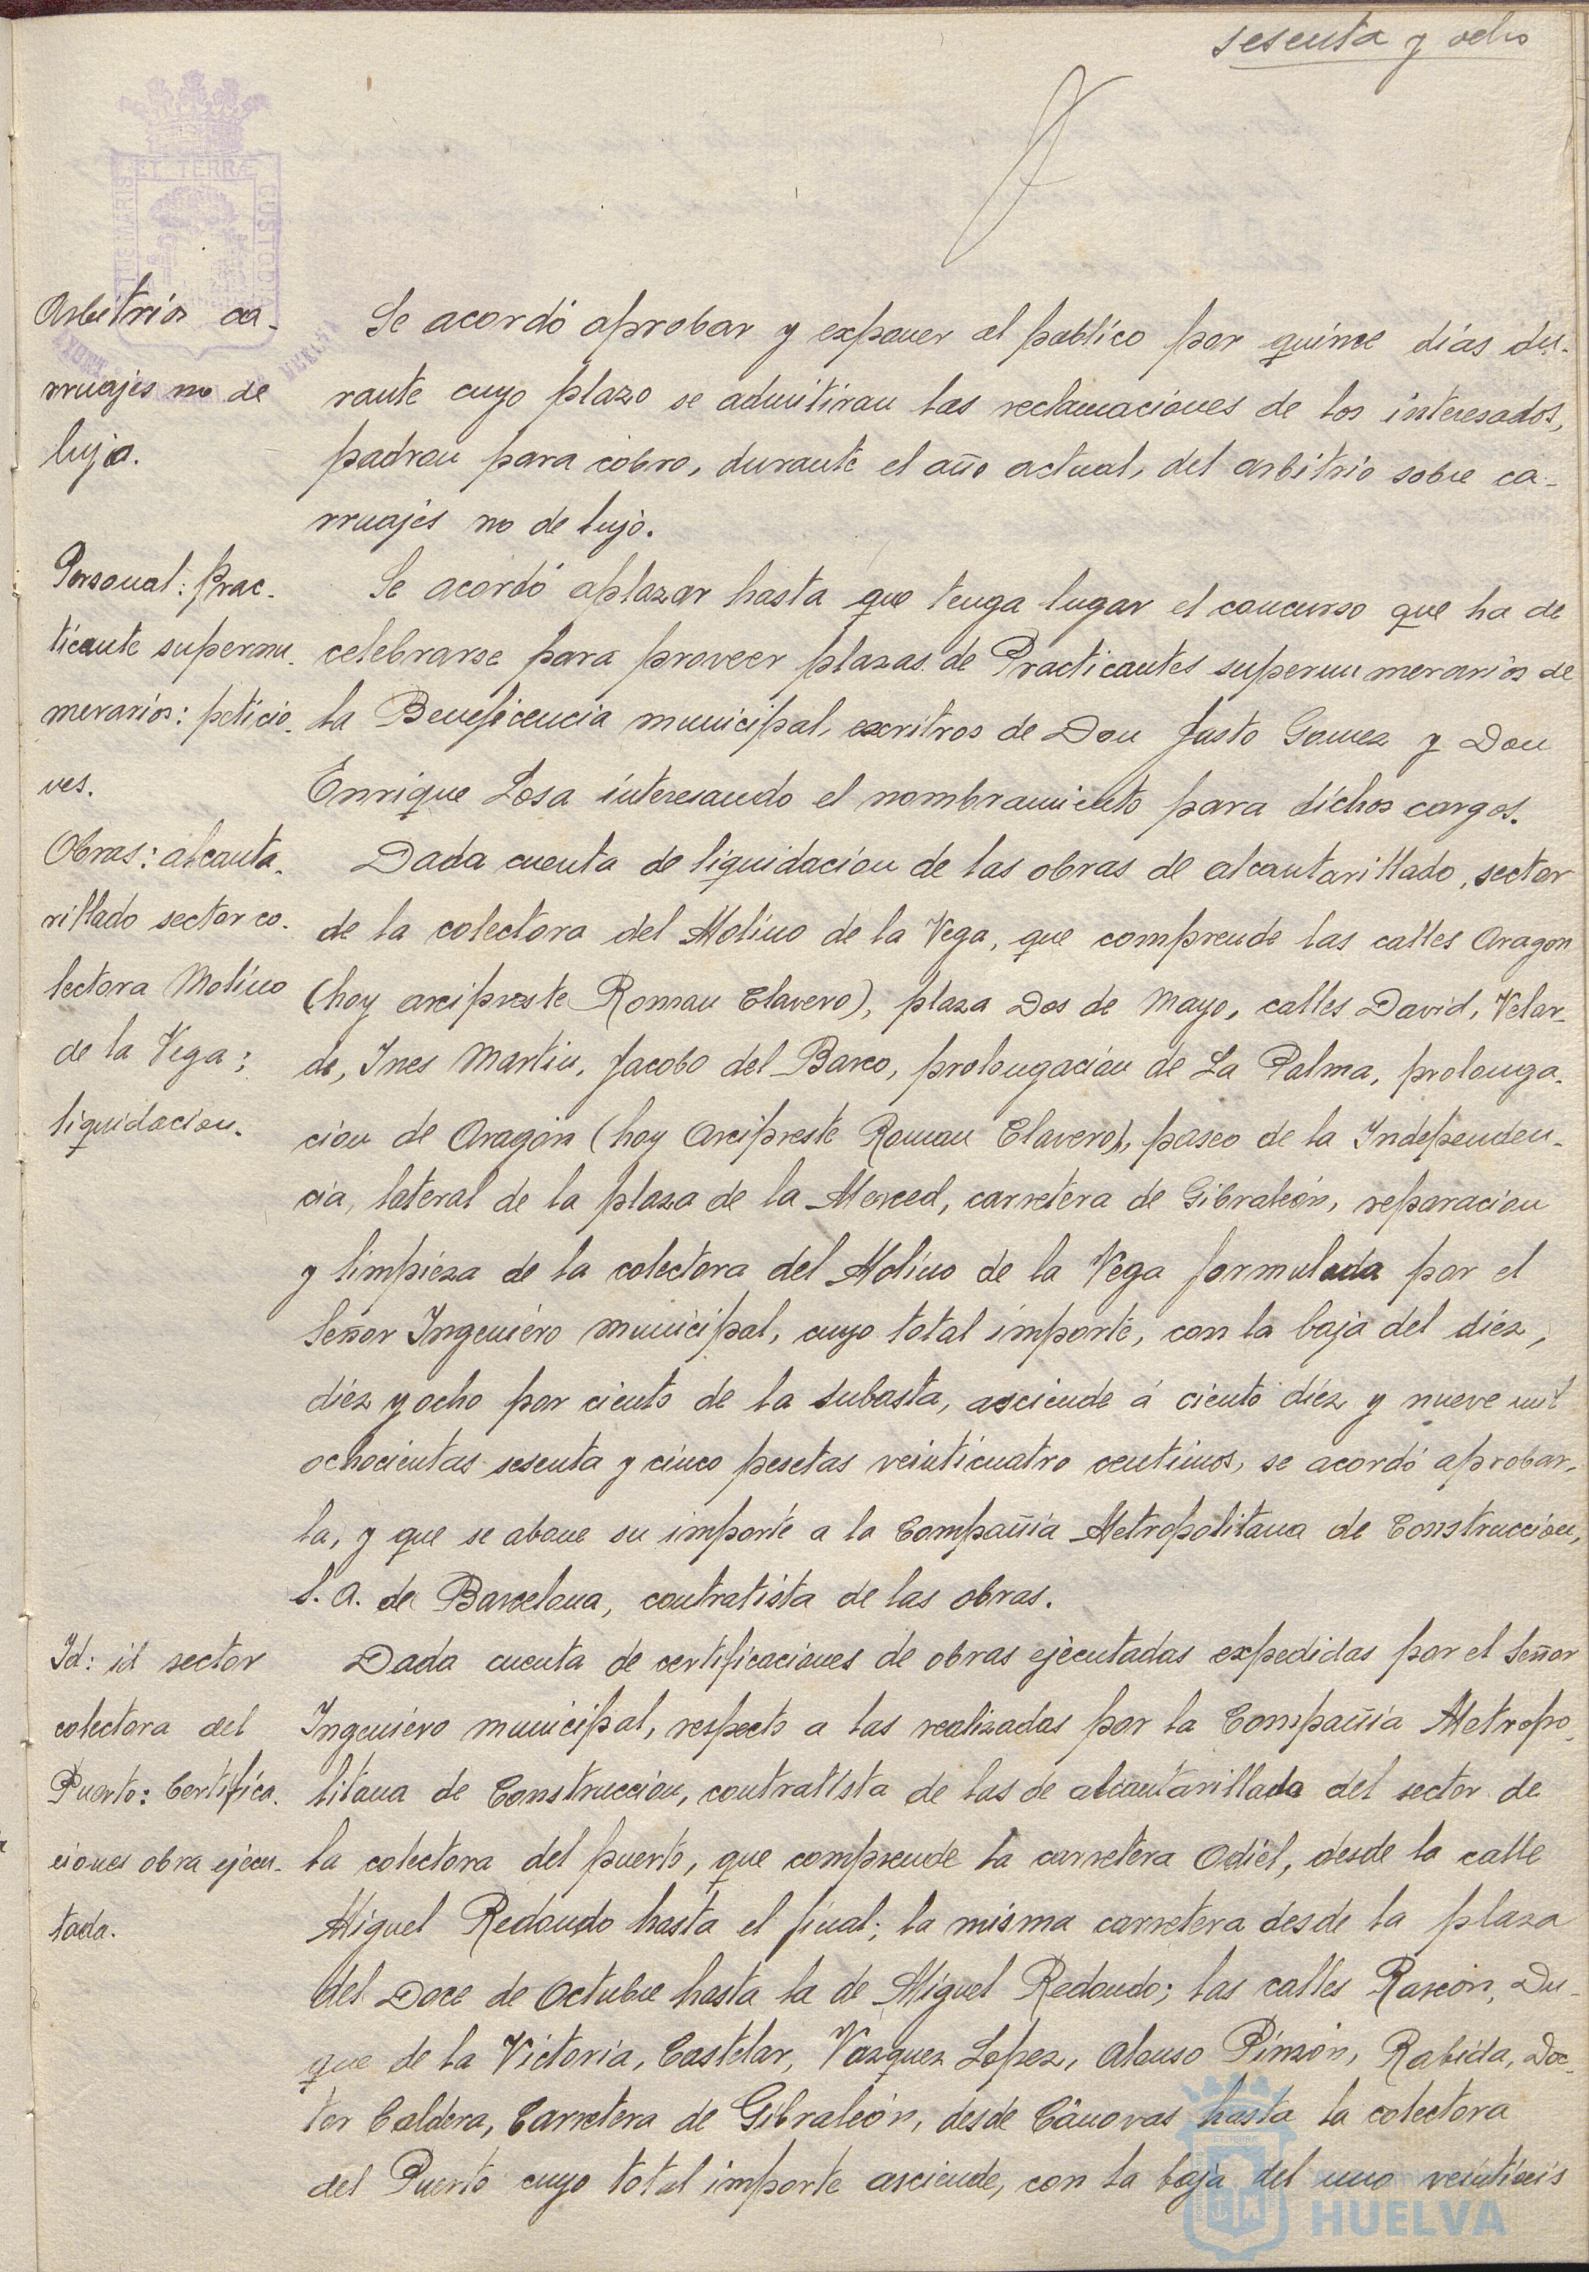 sesenta y ocho
ET TERRÆ
Arbitrios ca-
rruajes no de
lujo.
Se acordó aprobar y exponer al público por quince días du-
rante cuyo plazo se admitiran las reclamaciones de los interesados,
padron para cobro, durante el año actual, del arbitrio sobre ca-
rruajes no de lujo.
Personal: Prac-
ticante supernu-
merarios: peticio-
nes.
Se acordó aplazar hasta que tenga lugar el concurso que ha de
celebrarse para proveer plazas de Practicantes supernumerarios de
la Beneficencia municipal, escritos de Don Justo Gomez y Don
Enrique Losa interesando el nombramiento para dichos cargos.
Obras: alcanta-
rillado sector co-
lectora Molino
de la Vega:
liquidacion.
Dada cuenta de liquidacion de las obras de alcantarillado, sector
de la colectora del Molino de la Vega, que comprende las calles Aragon
(hoy arcipreste Roman Clavero), plaza Dos de Mayo, calles David, Velar-
de, Ines Martin, Jacobo del Barco, prolongación de La Palma, prolonga-
cion de Aragón (hoy Arcipreste Roman Clavero), paseo de la Independen-
cia, lateral de la plaza de la Merced, carretera de Gibraleón, reparacion
y limpieza de la colectora del Molino de la Vega formulada por el
Señor Ingeniero municipal, cuyo total importe, con la baja del diez,
diez y ocho por ciento de la subasta, asciende á ciento diez y nueve mil
ochocientas sesenta y cinco pesetas veinticuatro centimos, se acordó aprobar-
la, y que se abone su importe a la Compañia Metropolitana de Construccion,
S. A. de Barcelona, contratista de las obras.
Id: id sector
colectora del
Puerto: Certifica-
ciones obra ejecu-
tada.
Dada cuenta de certificaciones de obras ejecutadas expedidas por el Señor
Ingeniero municipal, respecto a las realizadas por la Compañia Metropo-
litana de Construccion, contratista de las de alcantarillado del sector de
la colectora del puerto, que comprende la carretera Odiel, desde la calle
Miguel Redondo hasta el final; la misma carretera desde la plaza
del Doce de Octubre hasta la de Miguel Redondo; las calles Rascón, Du-
que de la Victoria, Castelar, Vazquez Lopez, Alonso Pinzón, Rabida, Doc-
tor Caldera, Carretera de Gibraleón, desde Cánovas hasta la colectora
del Puerto cuyo total importe asciende, con la baja del uno veintiseis
HUELVA